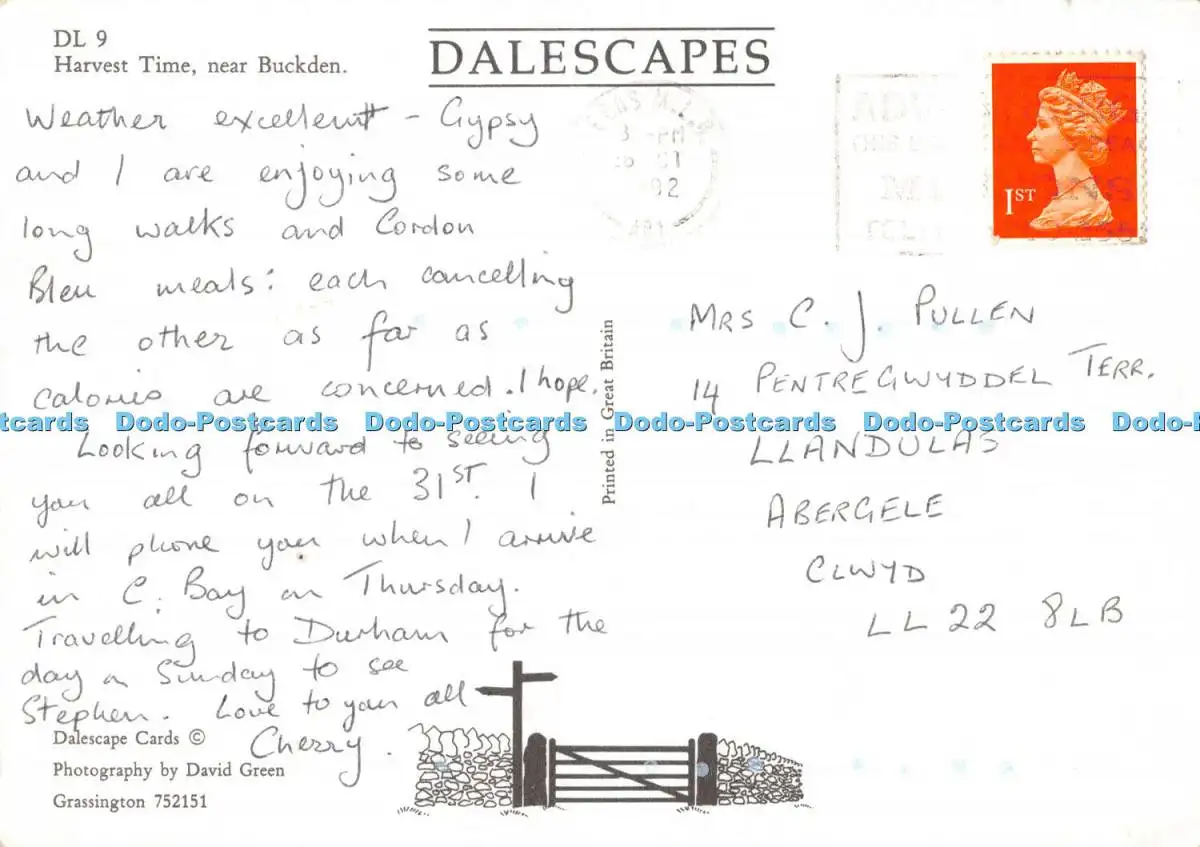 DL 9
Harvest Time, near Buckden.
DALESCAPES
Weather excellent - Gypsy
and I are enjoying some
long walks and Cordon
Bleu meals: each cancelling
the other as far as
calories are concerned. I hope.
Looking forward to seeing
you all on the 31ST. I
will phone you when I arrive
in C. Bay on Thursday.
Travelling to Durham for the
day on Sunday to see
Stephen. Love to you all
Cherry.
Dalescape Cards ©
Photography by David Green
Grassington 752151
Printed in Great Britain
1ST
MRS C. J. PULLEN
14 PENTREGWYDDEL TERR.
LLANDULAS
ABERGELE
CLWYD
LL22 8LB
Postcards Dodo-Postcards Dodo-Postcards Dodo-Postcards Dodo-Postcards Dodo-Postcards